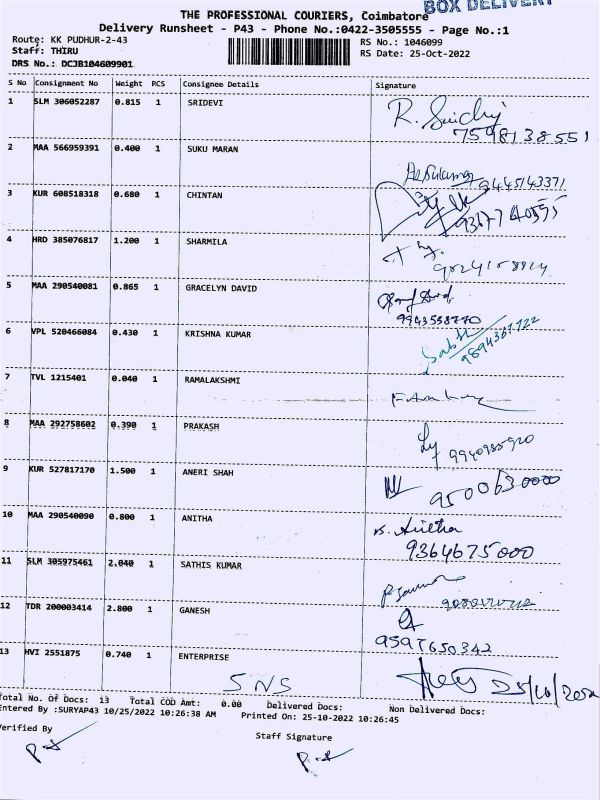 BOX DELIVERY
THE PROFESSIONAL COURIERS, Coimbatore
Delivery Runsheet - P43 - Phone No.:0422-3505555 - Page No.:1
Route: KK PUDHUR-2-43 RS No.: 1046099
Staff: THIRU RS Date: 25-Oct-2022
DRS No.: DCJB104609901
S No Consignment No Weight PCS Consignee Details Signature
1 SLM 306052287 0.815 1 SRIDEVI
7598138551
2 MAA 566959391 0.400 1 SUKU MARAN
9445143371
3 KUR 608518318 0.680 1 CHINTAN
4 HRD 385076817 1.200 1 SHARMILA
5 MAA 290540081 0.865 1 GRACELYN DAVID
9943558770
6 VPL 520466084 0.430 1 KRISHNA KUMAR
7 TVL 1215401 0.040 1 RAMALAKSHMI
8 MAA 292758602 0.390 1 PRAKASH
9940985920
9 KUR 527817170 1.500 1 ANERI SHAH
9500630000
10 MAA 290540090 0.800 1 ANITHA
9364675000
11 SLM 305975461 2.040 1 SATHIS KUMAR
12 TDR 200003414 2.800 1 GANESH
9597650342
13 HVI 2551875 0.740 1 ENTERPRISE
SNS
Total No. Of Docs: 13 Total COD Amt: 0.00 Delivered Docs: Non Delivered Docs:
Entered By :SURYAP43 10/25/2022 10:26:38 AM Printed On: 25-10-2022 10:26:45
Verified By Staff Signature